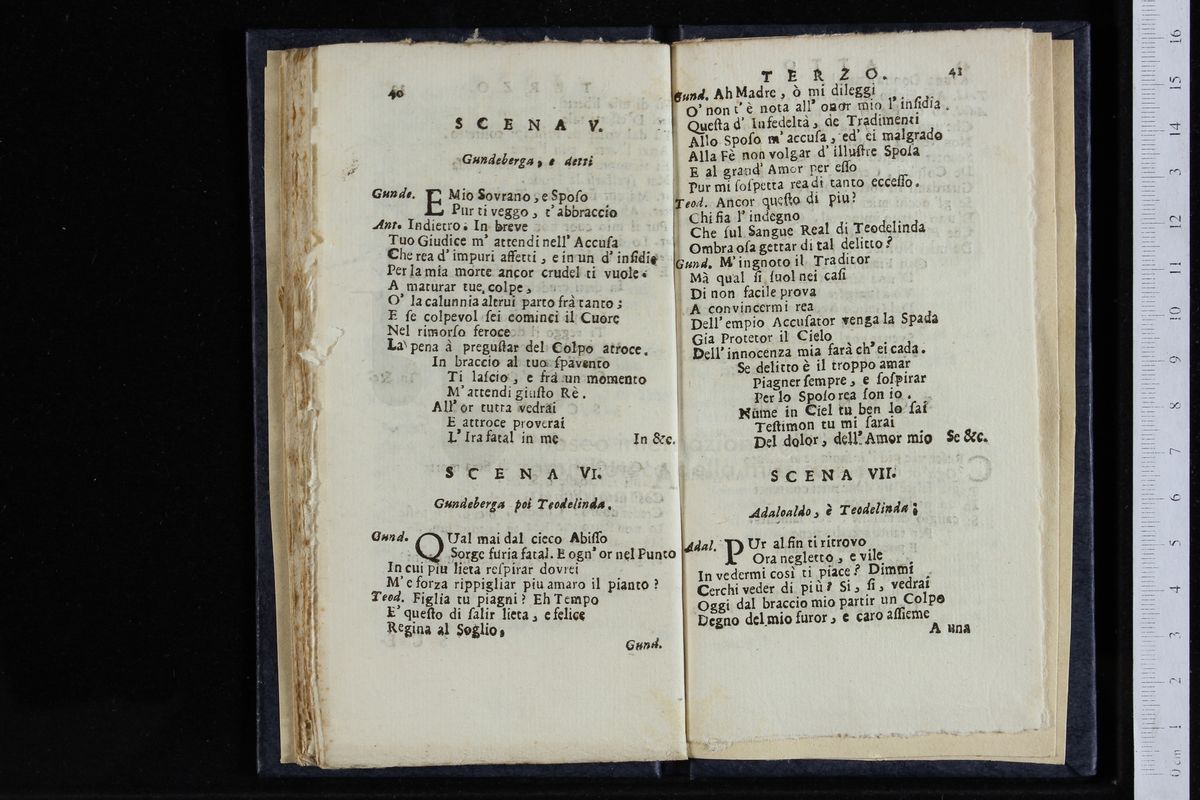 40
SCENA V.
Gundeberga, e detti
Gunde. E Mio Sovrano, e Sposo
Pur ti veggo, t'abbraccio
Ant. Indietro. In breve
Tuo Giudice m' attendi nell' Accusa
Che rea d' impuri affetti, e in un d' insidie
Per la mia morte ancor crudel ti vuole.
A maturar tue colpe,
O' la calunnia altrui parto frà tanto;
E se colpevol sei cominci il Cuore
Nel rimorso feroce
La pena à pregustar del Colpo atroce.
In braccio al tuo spavento
Ti lascio, e frà un momento
M' attendi giusto Rè.
All' or tutta vedrai
E attroce proverai
L' Ira fatal in me In &c.
SCENA VI.
Gundeberga poi Teodelinda.
Gund. QUal mai dal cieco Abisso
Sorge furia fatal. E ogn' or nel Punto
In cui più lieta respirar dovrei
M' e forza rippigliar piu amaro il pianto?
Teod. Figlia tu piagni? Eh Tempo
E' questo di salir lieta, e felice
Regina al Soglio,
Gund.
TERZO. 41
Gund. Ah Madre, ò mi dileggi
O' non t' è nota all' onor mio l' insidia.
Questa d' Infedeltà, de Tradimenti
Allo Sposo m' accusa, ed' ei malgrado
Alla Fè non volgar d' illustre Sposa
E al grand' Amor per esso
Pur mi sospetta rea di tanto eccesso.
Teod. Ancor questo di piu?
Chi fia l' indegno
Che sul Sangue Real di Teodelinda
Ombra osa gettar di tal delitto?
Gund. M' ingnoto il Traditor
Mà qual si suol nei casi
Di non facile prova
A convincermi rea
Dell' empio Accusator venga la Spada
Gia Protetor il Cielo
Dell' innocenza mia farà ch' ei cada.
Se delitto è il troppo amar
Piagner sempre, e sospirar
Per lo Sposo rea son io.
Nume in Ciel tu ben lo sai
Testimon tu mi sarai
Del dolor, dell' Amor mio Se &c.
SCENA VII.
Adaloaldo, è Teodelinda;
Adal. PUr alfin ti ritrovo
Ora negletto, e vile
In vedermi così ti piace? Dimmi
Cerchi veder di più? Si, si, vedrai
Oggi dal braccio mio partir un Colpo
Degno del mio furor, e caro assieme
A una